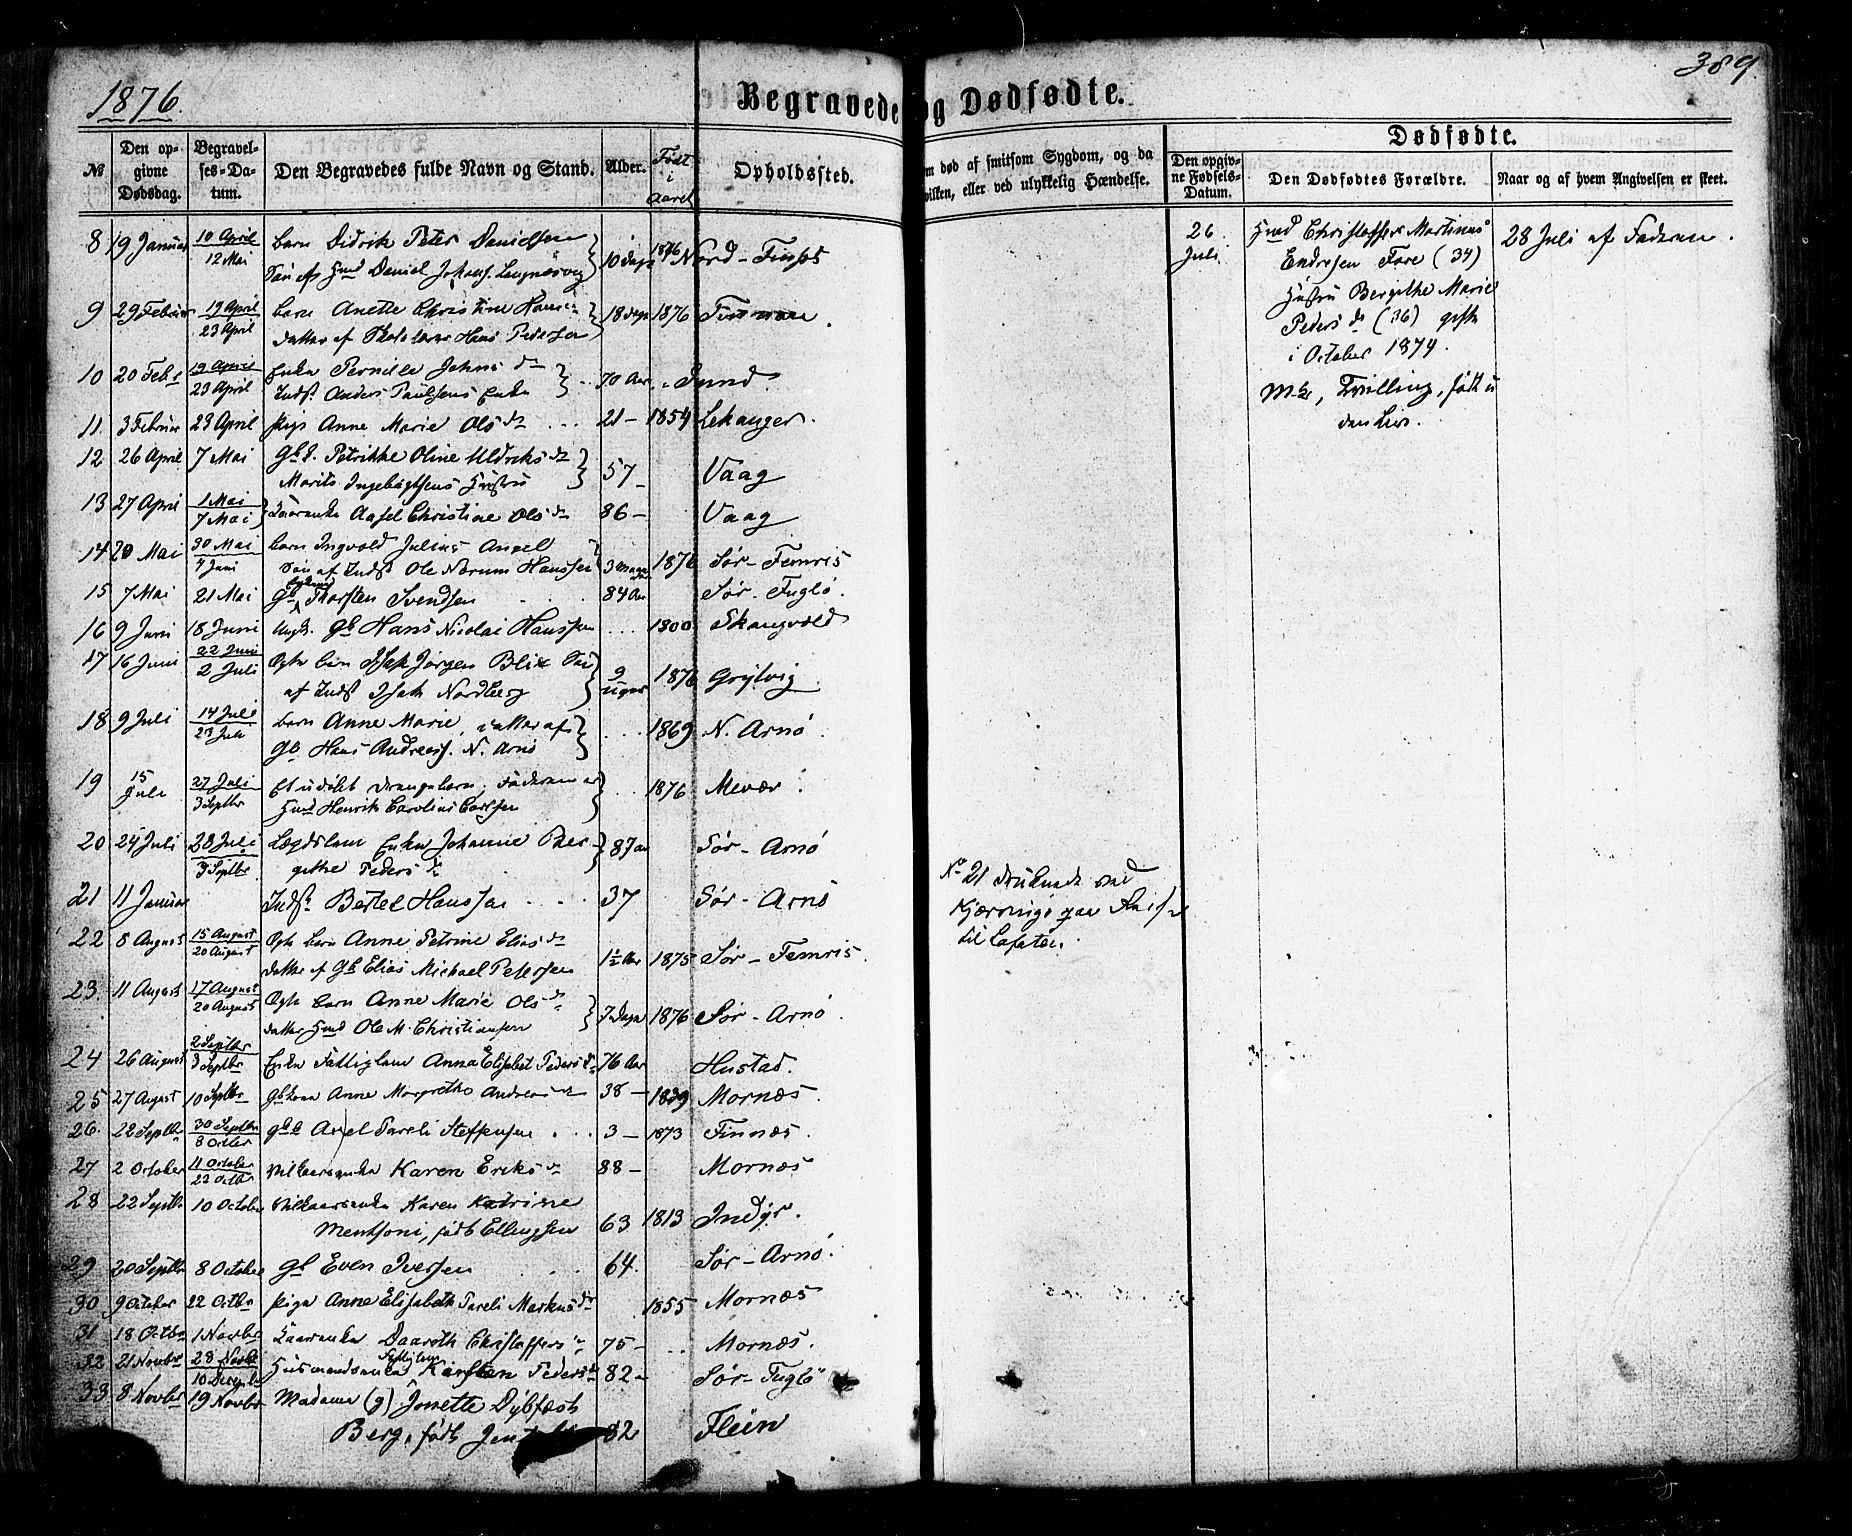 1876.
389.
Begravede og Dødfødte.
Dødfødte.
No
Den opgivne Dødsdag.
Begravelses-Datum.
Den Begravedes fulde Navn og Stand.
Alder.
Født i Aaret
Opholdssted.
Om død af smitsom Sygdom, og da
hvilken, eller ved ulykkelig Hændelse.
Den opgivne Fødsels-Datum.
Den Dødfødtes Forældre.
Naar og af hvem Angivelsen er skeet.
8 19 Januar 10 April 12 Mai barn Didrik Peter Danielsen
Søn af Hmd Daniel Johans. Lengnesvig 10 Dage 1876 Nord-Finnes
9 29 Februar 19 April 23 April barn Anette Christine Hans
datter af Skolelærer Hans Pedersen 18 Dage 1876
10 20 Febr 19 April 23 April Enke Pernille Johns dr
Indst Anders Paulsens Enke 70 Aar Sund.
11. 3 Februar 23 April Pige Anne Marie Olsdr 21 - 1854 Lekanger.
12 26 April 7 Mai Gbk. Petrikke Oline Uldriksdr
Marits Ingebrigtsens Hustru 57 - Vaag
13 27 April 1 Mai 7 Mai Kaarenke Aasel Christine Olsdr 86 - Vaag
14 20 Mai 30 Mai 4 Juni barn Ingvold Julius Angel
Søn af Indst Ole Norum Hanssen 3 Maaneder 1876 Sør-Femris
15 7 Mai 21 Mai Gb Thorsten Svendsen 84 Aar Sør-Fuglø.
16 9 Juni 18 Juni Ungk. Gb Hans Nicolai Hanssen 1800 Skaugvold
17 16 Juni 22 Juni 2 Juli Ægte barn Isak Jørgen Blix Søn
af Indst Isak Nordberg 9 Uger 1876 Grytvig
18 9 Juli 14 Juli 23 Juli barn Anne Marie, datter af
Gb Hans Andreas. N. Arnø 1869 N. Arnø
19 15 Juli 27 Juli 3 Septbr Et udøbt Drengebarn, Faderen er
Hmd Henrik Carolius Carlsen 1876 Mevær.
20 24 Juli 28 Juli 3 Septbr Lægdslem Enke Johanne Bergithe
Peders dr 87 Aar Sør-Arnø
21 11 Januar Indst Bertel Hanssen 37 Sør-Arnø
No 21 druknede ved
Kjærringø paa Reise
til Lofoten.
22 8 August 15 August 20 August Ægte barn Anne Petrine Eliasdr
datter af Gb Elias Michael Petersen 1½ Aar 1875 Sør-Femris.
23. 11 August 17 August 20 August Ægte barn Anne Marie Olsdr
datter Hmd Ole M. Christiansen 7 Dage 1876 Sør-Arnø.
24 26 August 2 Septbr 3 Septbr Enke Fattiglem Anna Elisabet Pedersdr 76 Aar Hustad.
25 27 August 10 Septbr Gbkone Anne Margrethe Andreasdr 38 - 1839 Mornæs.
26. 22 Septbr 30 Septbr 8 Octbr Axel Pareli Steffensen 3 - 1873 Finnæs.
27 2 October 11 October 22 Octbr Vilkaarsenke Karen Eriksdr 88 - Mornæs
28 22 Septbr 10 October Vilkaarsenke Karen Katrine
Mentsoni, født Ellingsen 63 1813 Indyr.
29 20 Septbr 8 October Gb Even Iversen 64. Sør-Arnø.
30 9 October 22 Octbr Pige Anne Elisabeth Pareli Markusdr 1855 Mornæs
31 18 Octbr 1 Novbr Kaarenke Daaroth Christoffersdr 75 - Mornæs.
32 21 Novbr 28 Novbr 10 Decembr Husmandsenke Fattiglem Kirsten Pedersdr 82 - Sør-Fuglø
33 8 Novbr 19 Novbr Madame (g) Jonette Dybfæst
Berg, født 82 Flein
26. Juli
Hmd Christoffer Martinus
Endresen Fore (34)
Hustru Bergithe Marie
Peders dr (36) gifte
i October 1874.
Tvilling, født u
den Liv.
28 Juli af Faderen.